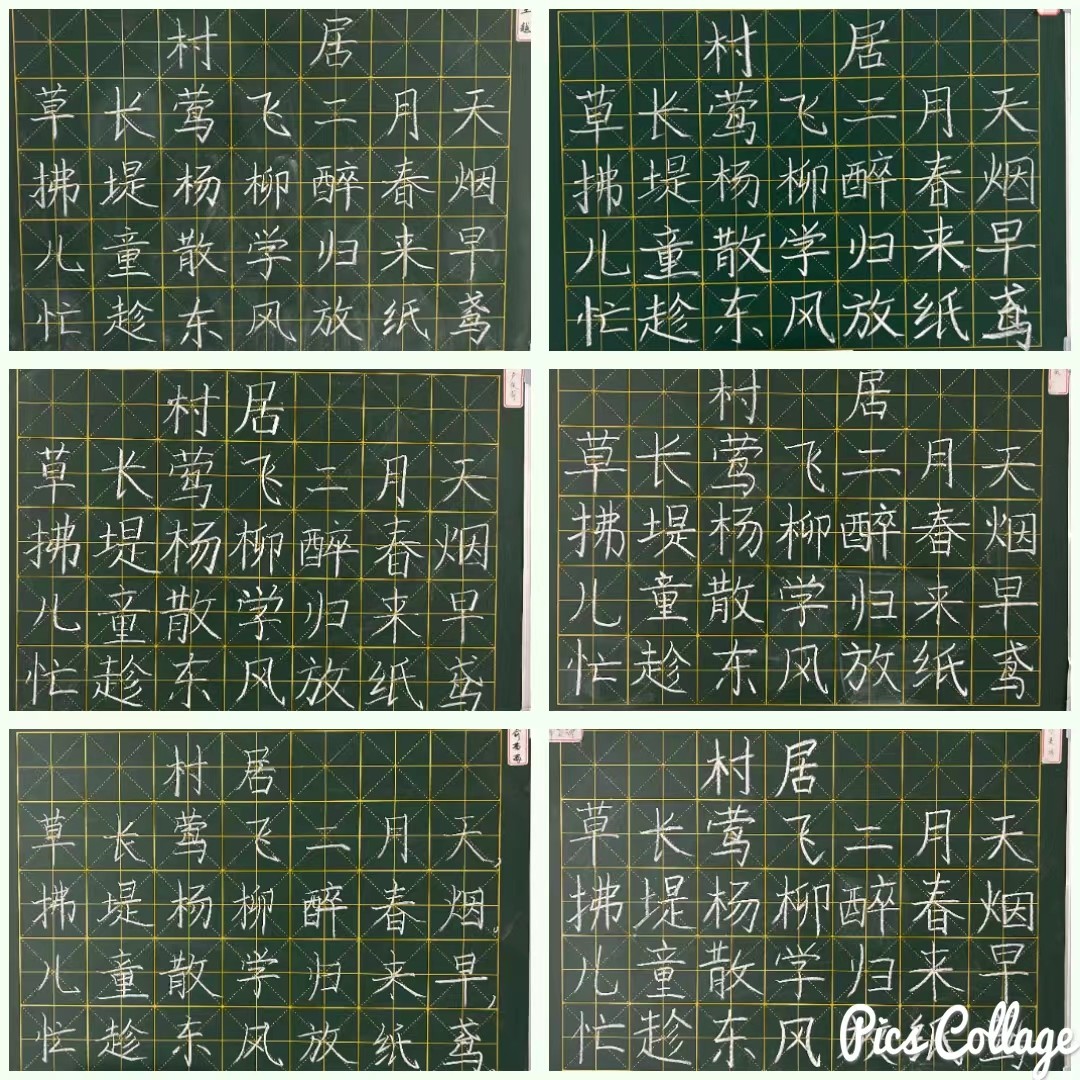 村居
草长莺飞二月天
拂堤杨柳醉春烟
儿童散学归来早
忙趁东风放纸鸢
村居
草长莺飞二月天
拂堤杨柳醉春烟
儿童散学归来早
忙趁东风放纸鸢
村居
草长莺飞二月天
拂堤杨柳醉春烟
儿童散学归来早
忙趁东风放纸鸢
村居
草长莺飞二月天
拂堤杨柳醉春烟
儿童散学归来早
忙趁东风放纸鸢
村居
草长莺飞二月天,
拂堤杨柳醉春烟。
儿童散学归来早,
忙趁东风放纸鸢。
村居
草长莺飞二月天
拂堤杨柳醉春烟
儿童散学归来早
忙趁东风放纸鸢
Pics Collage